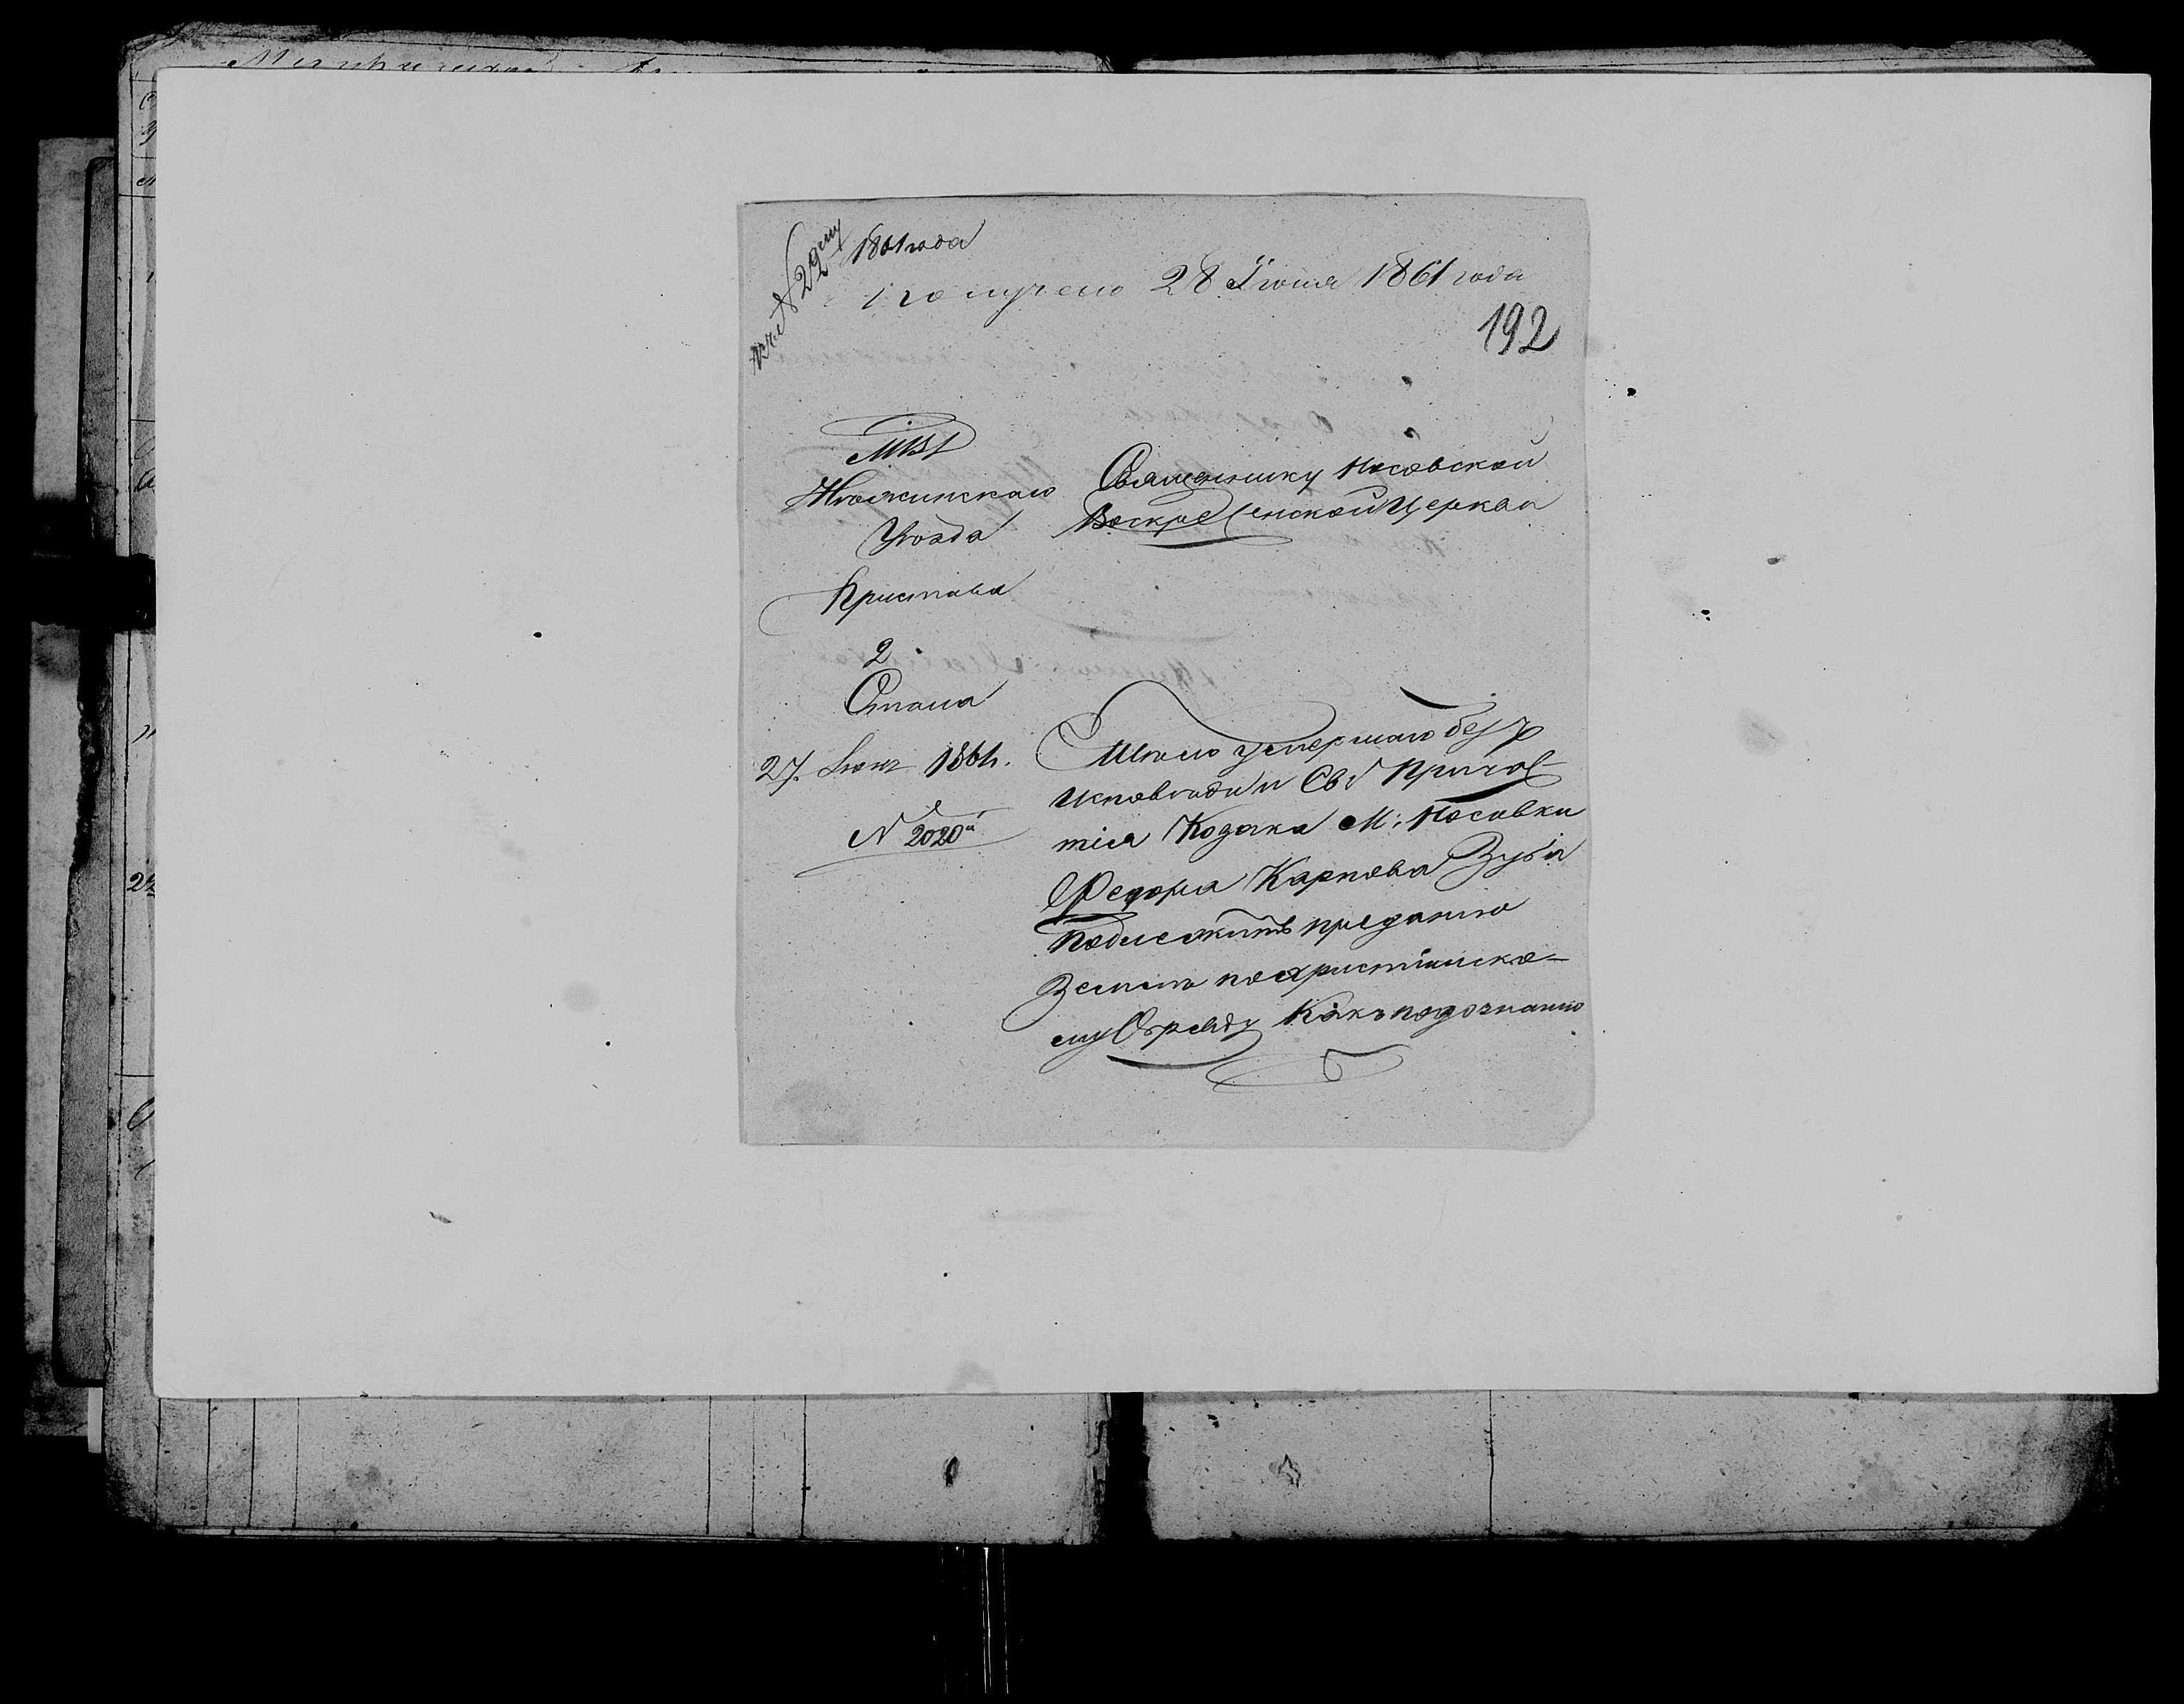 № 29й
1861 года
Получено 28 Іюня 1861 года
192
МВД
Нѣжинскаго
Уѣзда
Пристава
2
Стана
27. Іюня 1861.
№ 2020й
Священнику Носовской
Воскресенской Церкви
Тѣло умершаго безъ
исповѣди и Св: Причас-
тія Козака М: Носовки
Федора Карпова Зуба
подлежитъ преданію
Землѣ по христіанско-
му Обряду Какъ по дознанію